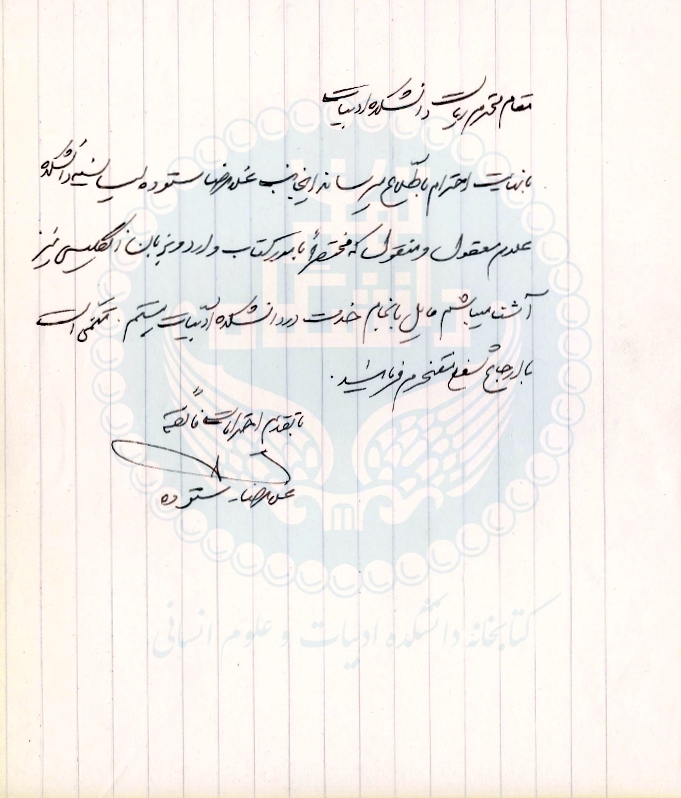 مقام محترم ریاست دانشکده ادبیات
با نهایت احترام باطّلاع میرساند اینجانب غلامرضا ستوده لیسانسیه دانشکده
علوم معقول و منقول که مختصراً با امور کتاب وارد و بزبان انگلیسی نیز
آشنا میباشم مایل بانجام خدمت در دانشکده ادبیّات هستم. متمنّی است
با ارجاع شغل مفتخرم فرمائید.
با تقدیم احترامات فائقه
غلامرضا ستوده
کتابخانهٔ دانشکده ادبیات و علوم انسانی